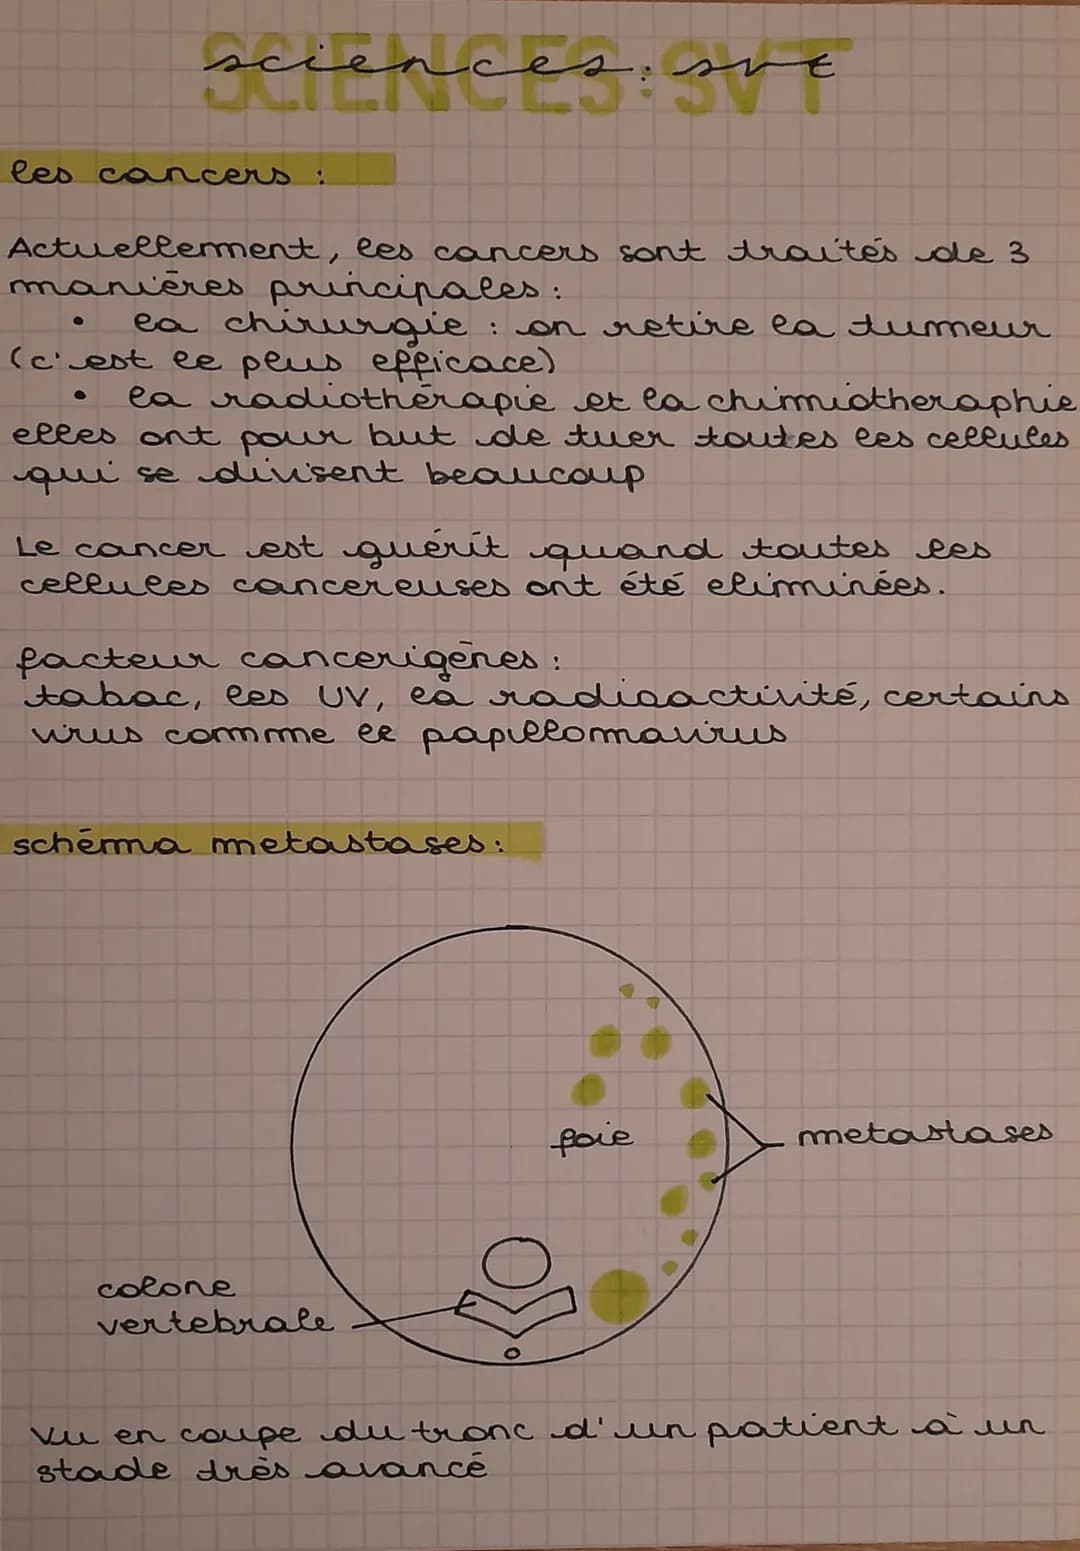 SCIENCES: SVT
sciences: svt
les cancers :
Actuellement, les cancers sont traités de 3
manières principales :
• la chirurgie : on retire la tumeur
(c'est le plus efficace)
• la radiothérapie et la chimiotheraphie
elles ont pour but de tuer toutes les cellules
qui se divisent beaucoup
Le cancer est guérit quand toutes les
cellules cancereuses ont été eliminées.
facteur cancerigènes :
tabac, les UV, la radioactivité, certains
virus comme le papillomavirus
schéma metastases :
foie
metastases
colone
vertebrale
vu en coupe du tronc d'un patient à un
stade très avancé